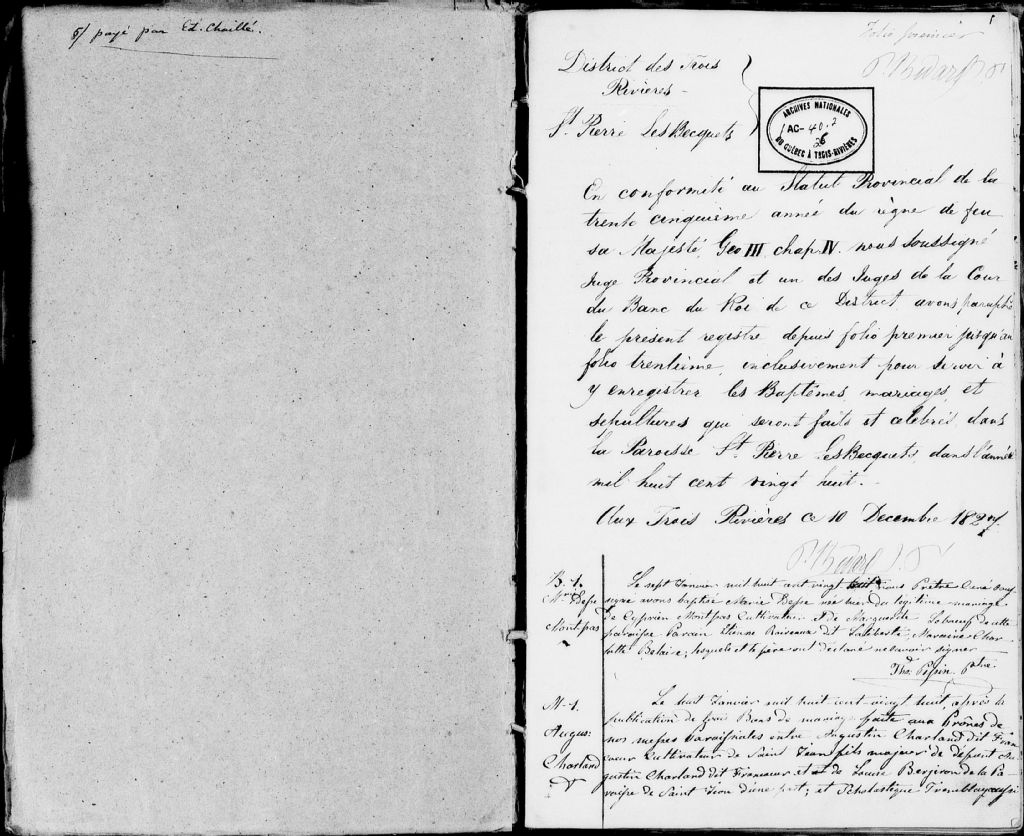 5/ payé par Ed. Chaillé.
1
Folio premier
P. Bedard J. P.
District des Trois
Rivières -
St Pierre LesBecquets
ARCHIVES NATIONALES
AC- 40.2
26
DU QUÉBEC À TROIS-RIVIÈRES
En conformité au Statut Provincial de la
trente cinquieme année du règne de feu
sa Majesté, Geo III, chap. IV. nous soussigné
Juge Provincial et un des Juges de la Cour
du Banc du Roi de ce District, avons paraphé
le présent registre depuis folio premier jusqu'au
folio trentième, inclusivement pour servir à
y enregistrer les Baptêmes, mariages, et
sepultures qui seront faits et célébrés, dans
la Paroisse St. Pierre LesBecquets, dans l'année
mil huit cent vingt huit. -
Aux Trois Rivières ce 10 Decembre 1827.
P. Bedard J. P.
B. 1.
Mrie Depe
Montpas
Le sept Janvier mil huit cent vingt huit nous Prêtre Curé sous
signé avons baptisé Marie née hier du légitime mariage
de Cyprien Montpas Cultivateur et de Marguerite Lebœuf de cette
paroisse Parain Etienne dit Laliberté, Maraine Char
lotte Belaire, lesquels et le père ont déclaré ne savoir signer
Ths. Pepin. Ptre.
M. 1.
Augus:
Charland
Le huit Janvier mil huit cent vingt huit, après la
publication de trois Bans de mariage faite aux Prônes de
nos messes paroissiales entre Augustin Charland dit Fran
cœur Cultivateur de Saint Jean fils majeur de défunt Au
gustin Charland dit Francœur et de Louise Bergeron de la Pa
roisse de Saint Jean d'une part; et Scholastique Tremblay aussi